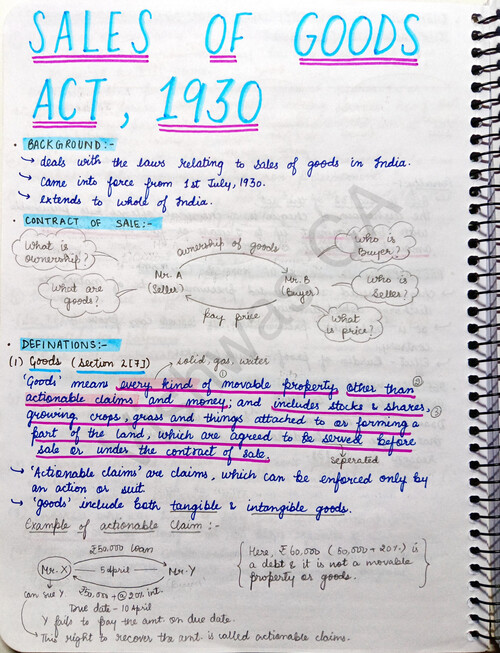 SALES OF GOODS
ACT, 1930
• BACKGROUND:-
→ deals with the laws relating to sales of goods in India.
→ Came into force from 1st July, 1930.
→ extends to whole of India.
• CONTRACT OF SALE:-
What is ownership?
ownership of goods
Who is Buyer?
What are goods?
Mr. A (Seller)
Mr. B (Buyer)
Who is Seller?
pay price
What is price?
• DEFINATIONS:-
(1) Goods (Section 2[7])
solid, gas, water
'Goods' means every kind of movable property ① other than ②
actionable claims and money; and includes stocks & shares, ③
growing crops, grass and things attached to or forming a
part of the land, which are agreed to be served before
sale or under the contract of sale.
seperated
→ 'Actionable claims' are claims, which can be enforced only by
an action or suit.
→ 'goods' include both tangible & intangible goods.
Example of actionable Claim:-
₹50,000 loan
Mr. X
5 April
Mr. Y
can sue Y
₹50,000 + @ 20% int.
Due date - 10 April
Y fails to pay the amt. on due date.
→ This right to recover the amt. is called actionable claims.
{ Here, ₹60,000 (50,000 + 20%) is
a debt & it is not a movable
property or goods. }